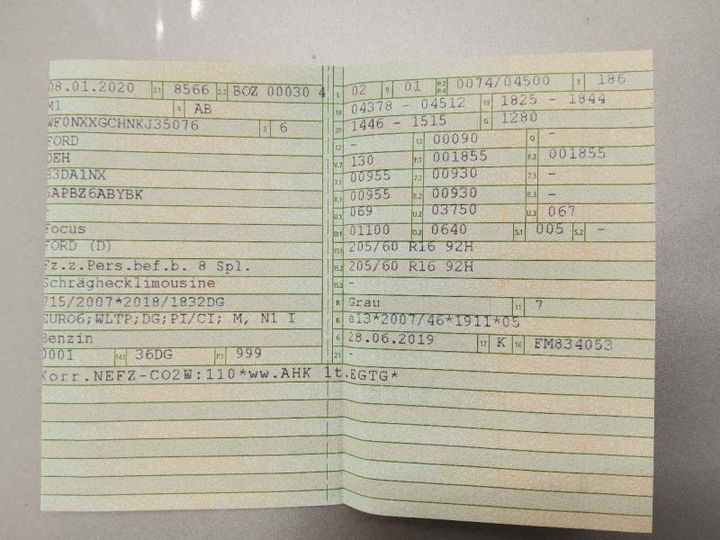 08.01.2020 2.1 8566 2.2 BOZ 00030 4
M1 4 AB
WF0NXXGCHNKJ35076 3 6
FORD
DEH
B3DA1NX
5APBZ6ABYBK
-
Focus
FORD (D)
Fz.z.Pers.bef.b. 8 Spl.
Schräghecklimousine
715/2007*2018/1832DG
EURO6;WLTP;DG;PI/CI; M, N1 I
Benzin
0001 14.1 36DG P.1 999
Korr.NEFZ-CO2W:110*ww.AHK lt.EGTG*
L 02 9 01 P.2 P.4 0074/04500 T 186
18 04378 - 04512 19 1825 - 1844
20 1446 - 1515 G 1280
12 - 13 00090 Q -
V.7 130 F.1 001855 F.2 001855
7.1 00955 7.2 00930 7.3 -
8.1 00955 8.2 00930 8.3 -
U.1 069 U.2 03750 U.3 067
O.1 01100 O.2 0640 S.1 005 S.2 -
15.1 205/60 R16 92H
15.2 205/60 R16 92H
15.3 -
R Grau 11 7
K e13*2007/46*1911*05
6 28.06.2019 17 K 16 FM834053
21 -